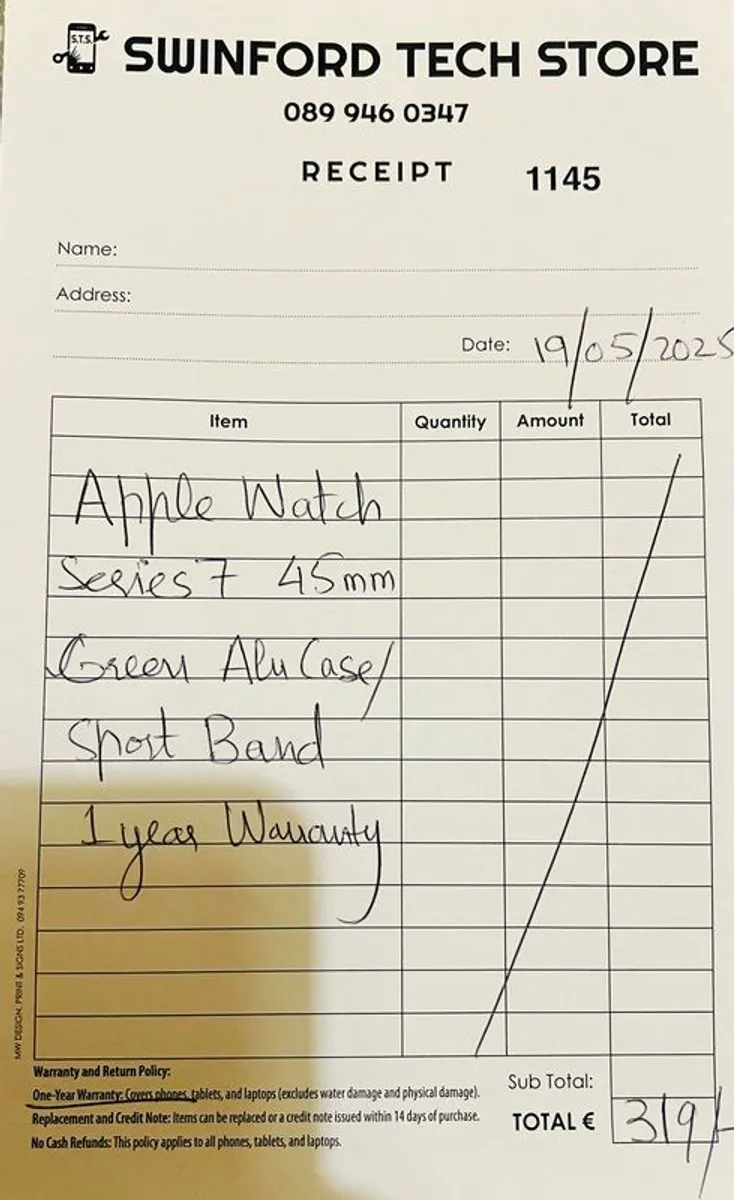 S.T.S.
SWINFORD TECH STORE
089 946 0347
RECEIPT 1145
Name:
Address:
Date: 19/05/2025
Item Quantity Amount Total
Apple Watch
Series 7 45mm
Green Alu Case/
Sport Band
1 year Warranty
MW DESIGN, PRINT & SIGNS LTD. 094 93 77709
Warranty and Return Policy:
One-Year Warranty: Covers phones, tablets, and laptops (excludes water damage and physical damage).
Replacement and Credit Note: Items can be replaced or a credit note issued within 14 days of purchase.
No Cash Refunds: This policy applies to all phones, tablets, and laptops.
Sub Total:
TOTAL € 319/-